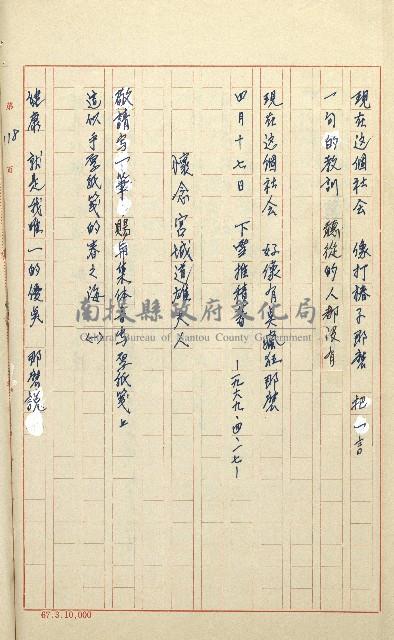 現在這個社會　像打椿子那麼　把一言
一句的教訓　聽從的人都沒有
現在這個社會　好像有其處在那麼
四月十七日　下雪堆積著　—一九六九・四・一七—
懷念宮城道雄夫人
敬請写一筆　賜與集体書写聖紙箋上
這似乎聖紙箋的春之海
健康　就是我唯一的優美　那麼說
第118頁
南投縣政府文化局
Cultural Bureau of Nantou County Government
67.3.10,000